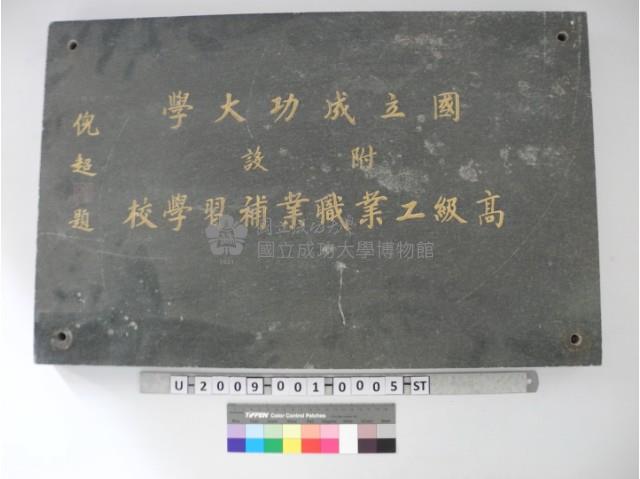 國立成功大學
附設
高級工業職業補習學校
倪超題
國立成功大學
國立成功大學博物館
1931
U-2009-001-0005-ST
TIFFEN Color Control Patches